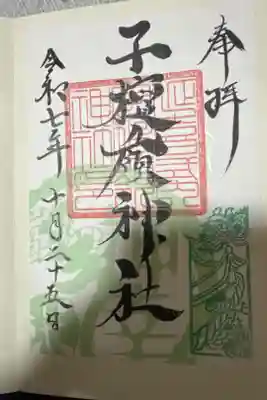 奉拝
子檀嶺神社
令和七年 十月二十五日